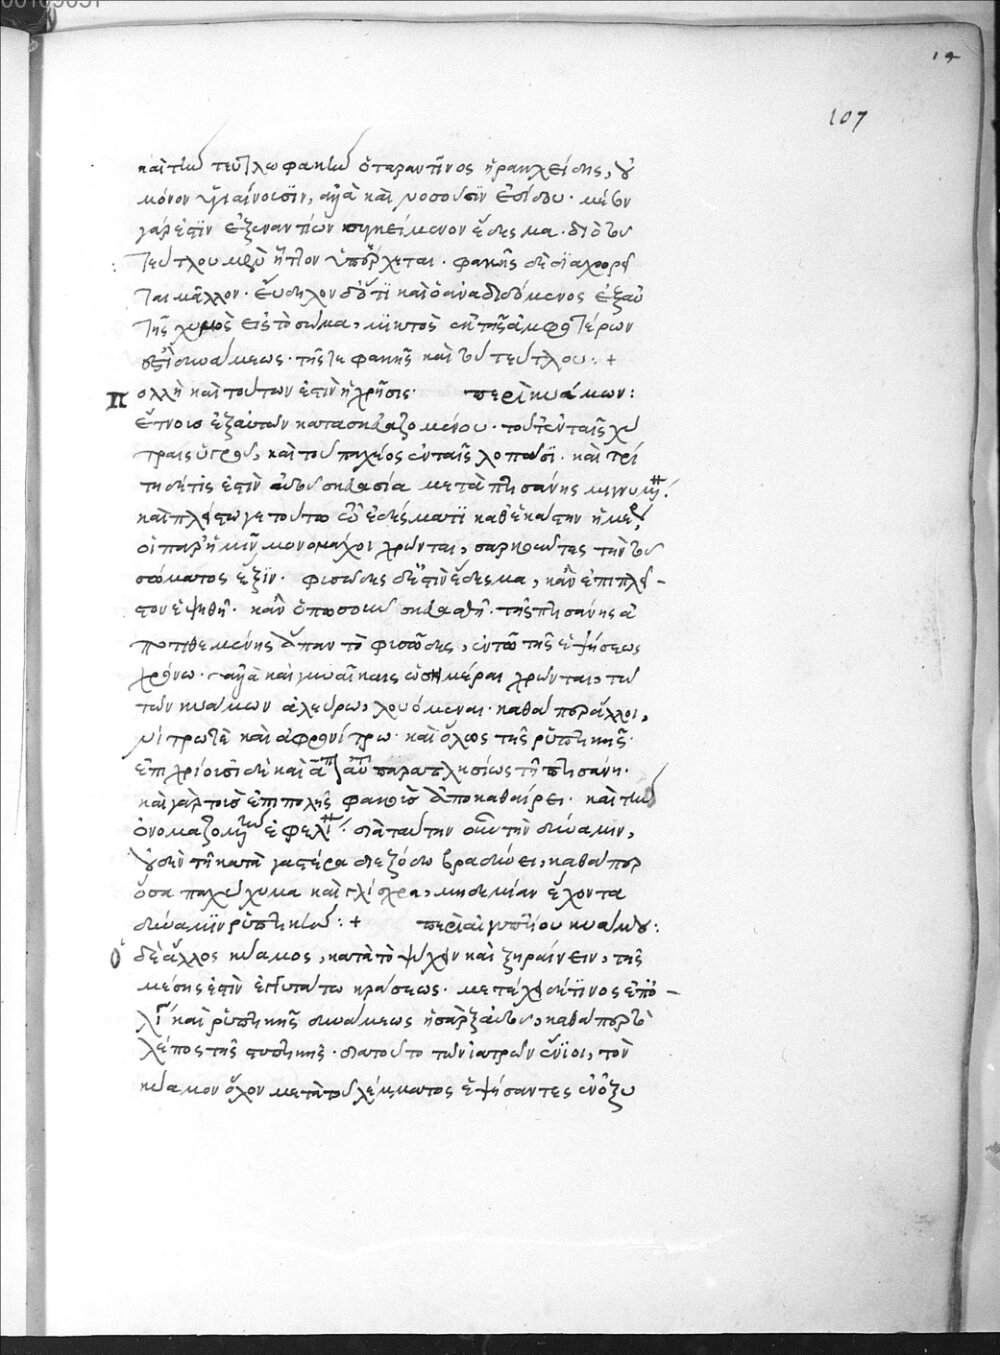 107
καὶ τὴν τευτλοφακὴν ὁ ταραντῖνος ἡρακλείδης, οὐ
μόνον ὑγιαίνουσιν, ἀλλὰ καὶ νοσοῦσιν ἐδίδου· μέσον
γάρ ἐστιν ἐξ ἐναντίων συγκείμενον ἔδεσμα· διὸ τοῦ
τεύτλου μὲν ἧττον ὑπέρχεται· φακῆς δὲ διαχωρεῖ
ται μᾶλλον· εὔδηλον δ' ὅτι καὶ ὁ ἀναδιδόμενος ἐξ αὐ
τῆς χυμὸς εἰς τὸ σῶμα, μικτὸς ἐκ τῆς ἀμφοτέρων
ἐστὶ δυνάμεως· τῆς τε φακῆς καὶ τοῦ τεύτλου: +
πολλὴ καὶ τούτων ἐστὶν ἡ χρῆσις· περὶ κυάμων:
ἔτνους ἐξ αὐτῶν κατασκευαζομένου· τοῦ τ' ἐν ταῖς χύ
τραις ὑγροῦ, καὶ τοῦ παχέος ἐν ταῖς λοπάσι· καὶ τρί
τη δέ τις ἐστὶν αὐτοῦ σκευασία μετὰ πτισάνης μιγνυμένη·
καὶ πλείστῳ γε τούτῳ τῷ ἐδέσματι καθ' ἑκάστην ἡμέραν
οἱ παρ' ἡμῖν μονομάχοι χρῶνται, σαρκοῦντες τὴν τοῦ
σώματος ἕξιν· φυσῶδες δ' ἐστὶν ἔδεσμα, κἂν ἐπιπλεῖ
στον ἑψηθῇ· κἂν ὁπωσοῦν σκευασθῇ· τῆς πτισάνης ἀ
ποτιθεμένης ἅπαν τὸ φυσῶδες, ἐν τῷ τῆς ἑψήσεως
χρόνῳ· ἀλλὰ καὶ γυναῖκες ὁσημέραι χρῶνται, τῷ
τῶν κυάμων ἀλεύρῳ, λουόμεναι· καθάπερ ἄλλοι,
νίτρῳ τε καὶ ἀφρονίτρῳ· καὶ ὅλως τῆς ῥυπτικῆς·
παραπλησίως τῇ πτισάνῃ·
καὶ γὰρ τοὺς ἐπιπολῆς φακοὺς ἀποκαθαίρει· καὶ τὴν
ὀνομαζομένην ἔφηλιν· διὰ ταύτην οὖν τὴν δύναμιν,
οὐδὲν τῇ κατὰ γαστέρα διεξόδῳ βραδύνει, καθάπερ
ὅσα παχύχυμα καὶ γλίσχρα, μηδεμίαν ἔχοντα
δύναμιν ῥυπτικήν: + περὶ αἰγυπτίου κυάμου:
ὁ δὲ ἄλλος κύαμος, κατὰ τὸ ψύχειν καὶ ξηραίνειν, τῆς
μέσης ἐστὶν ἐγγυτάτω κράσεως· μετέχει δέ τινος ἐπ' ὀ
λίγον καὶ ῥυπτικῆς δυνάμεως ἡ σὰρξ αὐτοῦ, καθάπερ τὸ
λέπος τῆς στυπτικῆς· διὰ τοῦτο τῶν ἰατρῶν ἔνιοι, τὸν
κύαμον ὅλον μετὰ τοῦ λέμματος ἑψήσαντες ἐν ὀξυ